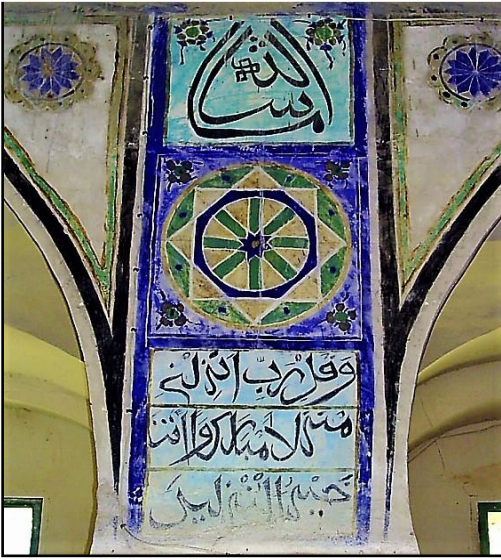 ما شاء الله
وَقُل رَّبِّ أَنزِلْنِي
مُنزَلًا مُّبَارَكًا وَأَنتَ
خَيْرُ الْمُنزِلِينَ